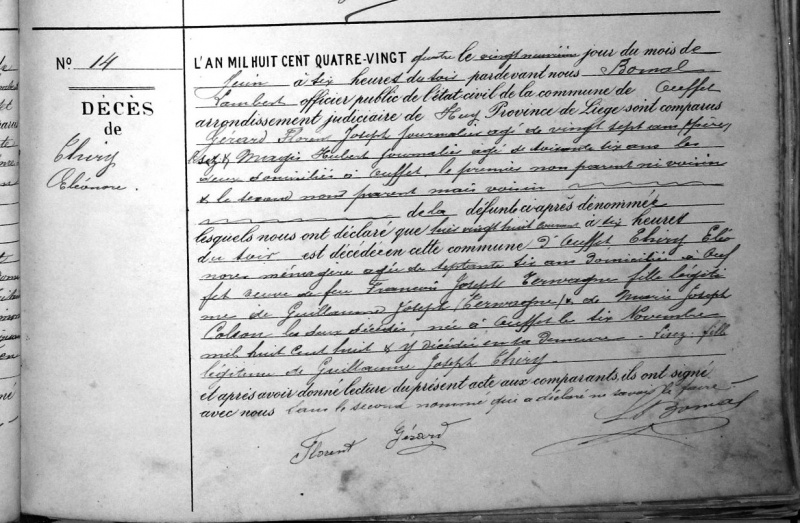 N° 14
DÉCÈS
de
Thiry
Eléonore.
L'AN MIL HUIT CENT QUATRE-VINGT quatre le vingt neuvième jour du mois de
Juin à six heures du soir pardevant nous Bomal
Lambert officier public de l'état-civil de la commune de Ouffet
arrondissement judiciaire de Huy Province de Liege sont comparus
Gérard Floren Joseph journalier agé de vingt sept ans
& Magis Hubert journalier agé de soixante six ans les
deux domiciliés à Ouffet, le premier non parent ni voisin
& le second non parent mais voisin
de la défunte ci-après dénommée
lesquels nous ont déclaré que le vingt huit courant à six heures
du soir est décédée en cette commune d'Ouffet Thiry Eléo
nore ménagère agée de septante six ans domiciliée à Ouf
fet veuve de feu François Joseph Terwagne fille légiti
me de Guillaume Joseph (Terwagne) & de Marie Joseph
Colson les deux décédés, née à Ouffet le six Novembre
mil huit cent huit & y décédée en sa demeure. Lisez fille
légitime de Guillaume Joseph Thiry
et après avoir donné lecture du présent acte aux comparants, ils ont signé
avec nous sauf le second nommé qui a déclaré ne savoir le faire.
Florent Gérard
L Bomal